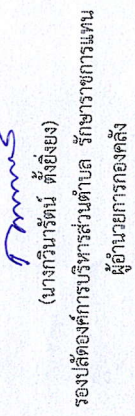 (นางกวินารัตน์ ตั้งยิ่งยง)
รองปลัดองค์การบริหารส่วนตำบล รักษาราชการแทน
ผู้อำนวยการกองคลัง